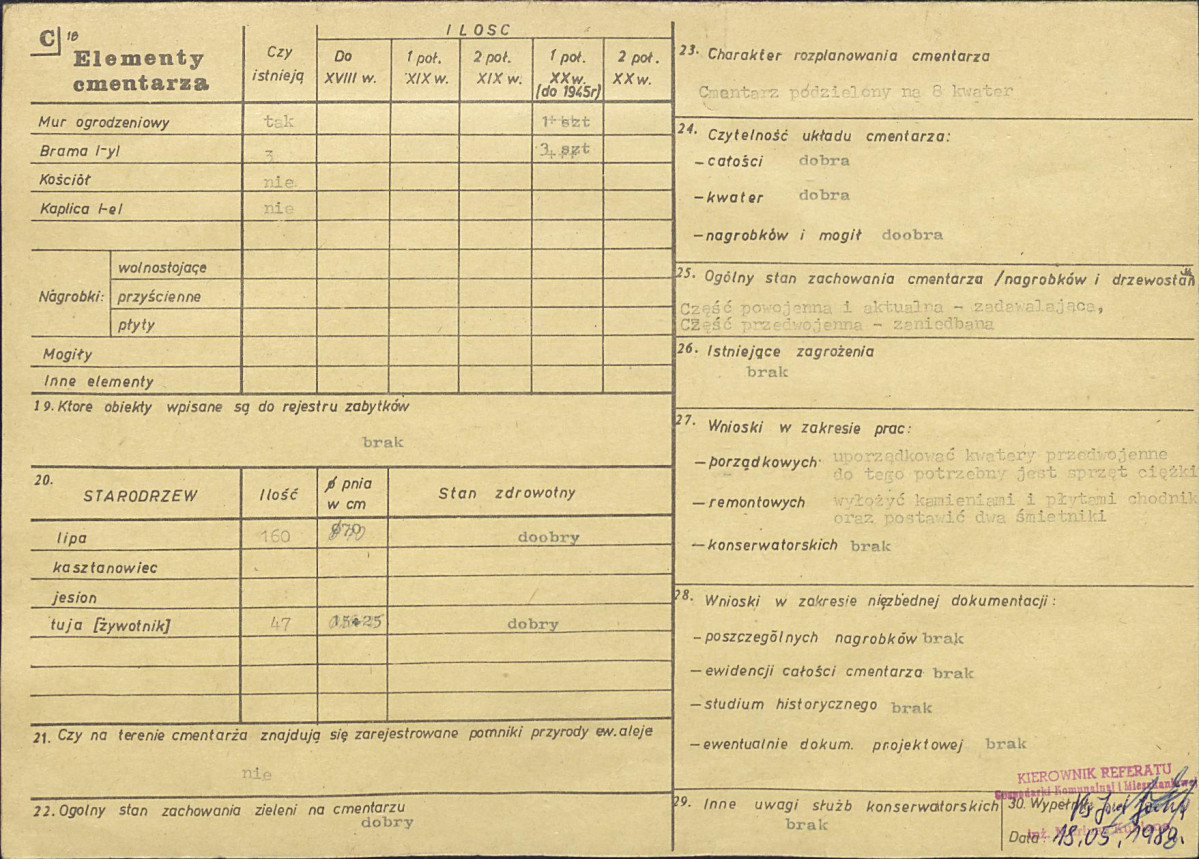 C 18
Elementy
cmentarza
Czy
istnieją
ILOSC
Do
XVIII w.
1 poł.
XIX w.
2 poł.
XIX w.
1 poł.
XX w.
(do 1945r)
2 poł.
XX w.
Mur ogrodzeniowy tak 1 szt
Brama I-yl 3 3 szt
Kościół nie
Kaplica I-el nie
Nagrobki:
wolnostojące
przyścienne
płyty
Mogiły
Inne elementy
19. Ktore obiekty wpisane są do rejestru zabytków
brak
20.
STARODRZEW Ilość ø pnia
w cm
Stan zdrowotny
lipa 160 doobry
kasztanowiec
jesion
tuja [żywotnik] 47 dobry
21. Czy na terenie cmentarza znajdują się zarejestrowane pomniki przyrody ew. aleje
nie
22. Ogolny stan zachowania zieleni na cmentarzu
dobry
23. Charakter rozplanowania cmentarza
Cmentarz pódzielony na 8 kwater
24. Czytelność układu cmentarza:
– całości dobra
– kwater dobra
– nagrobków i mogił doobra
25. Ogólny stan zachowania cmentarza /nagrobków i drzewostan
Część powojenna i aktualna - zadawalająca,
Część przedwojenna - zaniedbana
26. Istniejące zagrożenia
brak
27. Wnioski w zakresie prac:
– porządkowych uporządkować kwatery przedwojenne
do tego potrzebny jest sprzęt ciężki
– remontowych wyłożyć kamieniami i płytami chodnik
oraz postawić dwa śmietniki
– konserwatorskich brak
28. Wnioski w zakresie nięzbednej dokumentacji:
– poszczególnych nagrobków brak
– ewidencji całości cmentarza brak
– studium historycznego brak
– ewentualnie dokum. projektowej brak
29. Inne uwagi służb konserwatorskich
brak
KIEROWNIK REFERATU
Gospodarki Komunalnej i Mieszkaniowej
30. Wypełnił
Data: 18.05.1988.